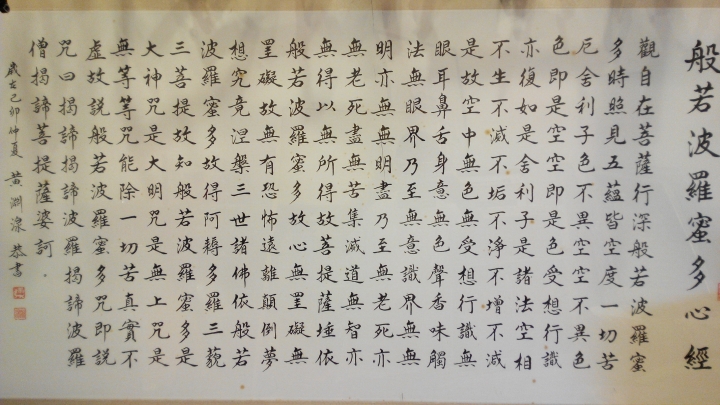 般若波羅蜜多心經
觀自在菩薩行深般若波羅蜜
多時照見五蘊皆空度一切苦
厄舍利子色不異空空不異色
色即是空空即是色受想行識
亦復如是舍利子是諸法空相
不生不滅不垢不淨不增不減
是故空中無色無受想行識無
眼耳鼻舌身意無色聲香味觸
法無眼界乃至無意識界無無
明亦無無明盡乃至無老死亦
無老死盡無苦集滅道無智亦
無得以無所得故菩提薩埵依
般若波羅蜜多故心無罣礙無
罣礙故無有恐怖遠離顛倒夢
想究竟涅槃三世諸佛依般若
波羅蜜多故得阿耨多羅三藐
三菩提故知般若波羅蜜多是
大神咒是大明咒是無上咒是
無等等咒能除一切苦真實不
虛故說般若波羅蜜多咒即說
咒曰揭諦揭諦波羅揭諦波羅
僧揭諦菩提薩婆訶
歲在己卯仲夏 黃 恭書